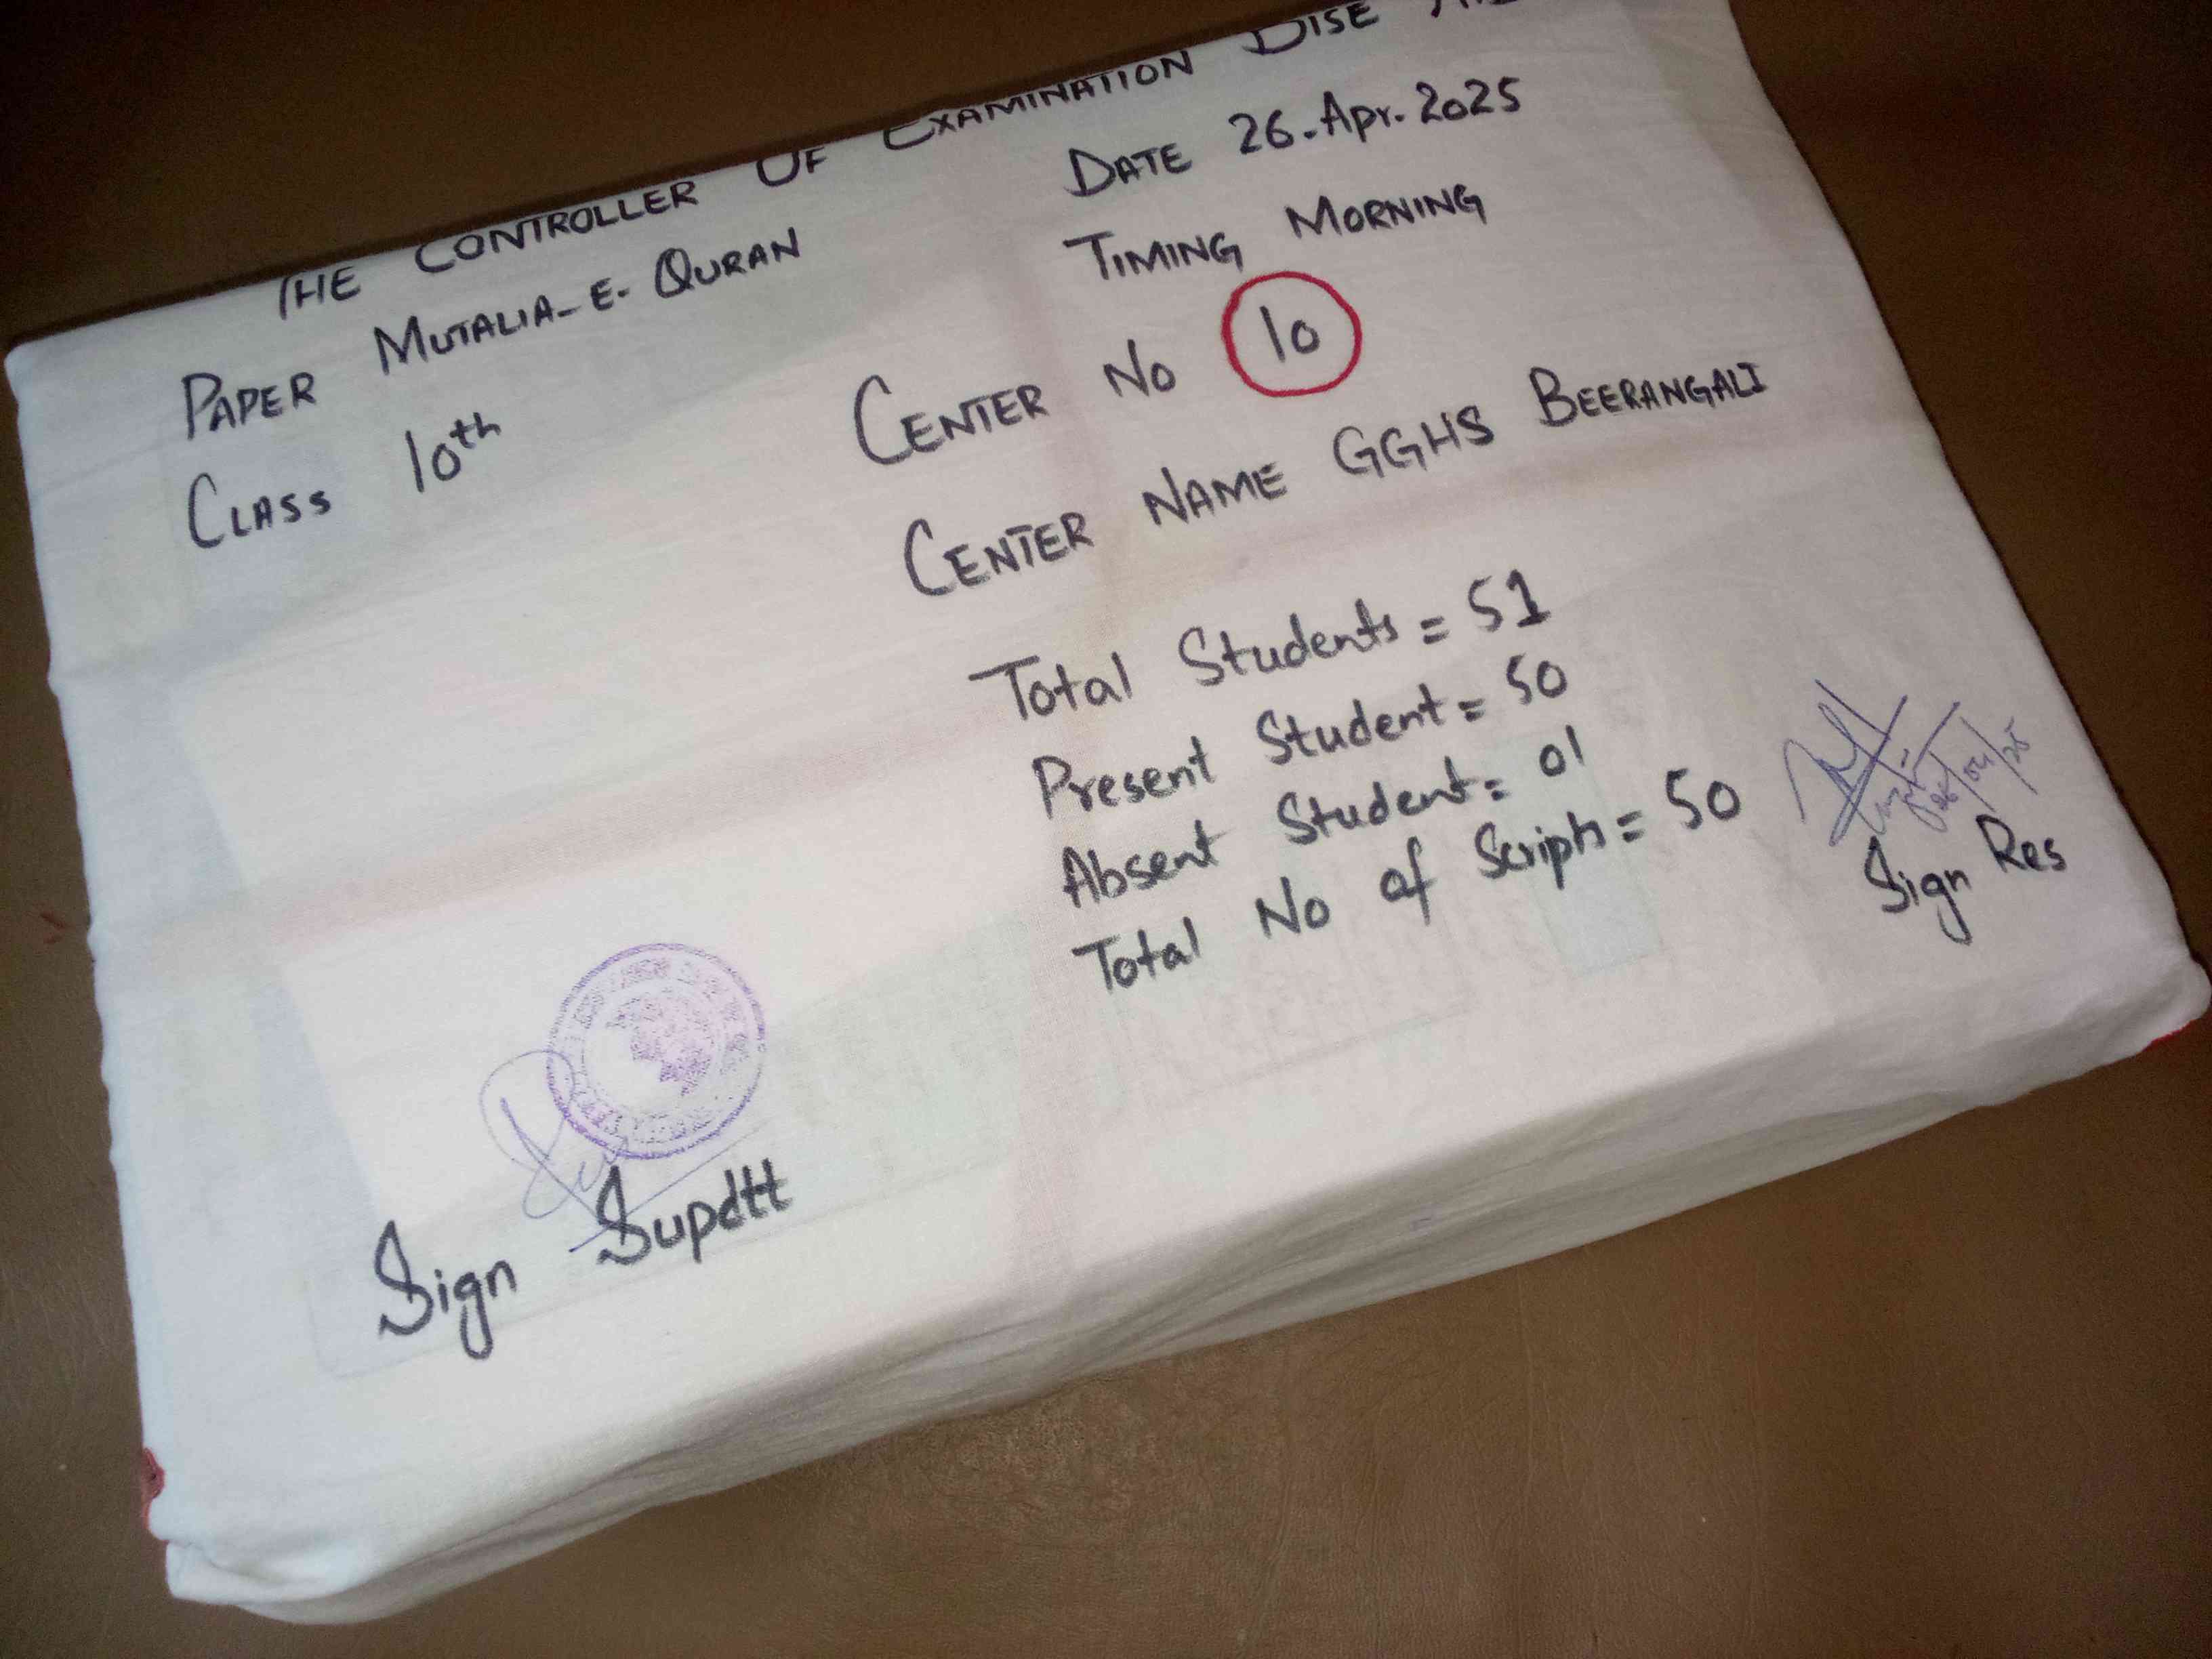 THE CONTROLLER OF EXAMINATION DISE
PAPER MUTALIA-E-QURAN
DATE 26.Apr.2025
CLASS 10th
TIMING MORNING
CENTER No 10
CENTER NAME GGHS BEERANGALI
Total Students = 51
Present Student = 50
Absent Student = 01
Total No of Scripts = 50
26/04/25
Sign Res
Sign Supdtt